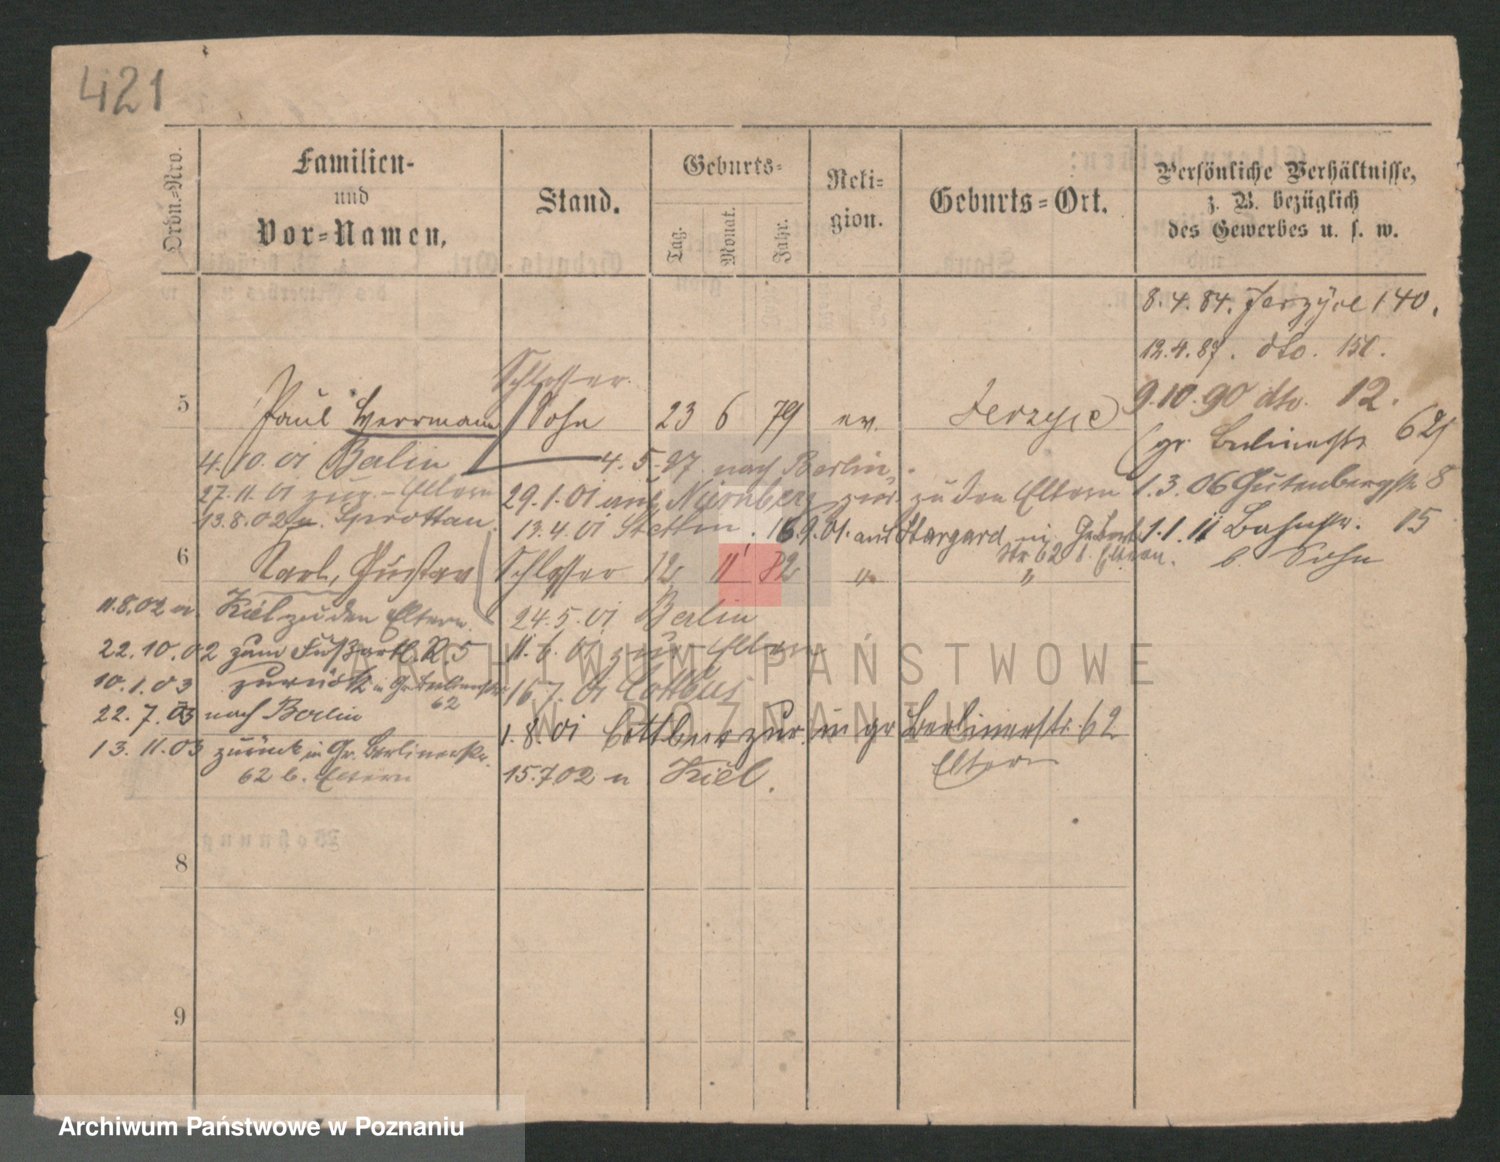 421
Ordn.-Nro.
Familien-
und
Vor-Namen.
Stand.
Geburts-
Tag.
Monat.
Jahr.
Reli-
gion.
Geburts-Ort.
Persönliche Verhältnisse,
z. B. bezüglich
des Gewerbes u. s. w.
8.4.84. Jerzyce 140.
12.4.87. dto. 151.
9.10.90 dto. 12.
gr. Berlinerstr. 62
1.3.06 Gutenbergstr 8
1.1.11 Bahnstr. 15
b. Sohn
Schlosser
5 Paul Werrmann Sohn 23 6 79 ev. Jerzyce
4.10.01 Berlin 4.5.97 nach Berlin
27.11.01 zur. Eltern 29.1.01 aus Nürnberg zur. zu den Eltern
13.8.02 n. Sprottau. 13.4.01 Stettin. 16.9.01. aus Stargard in Gr. Berl.
Str. 62 b. Eltern.
6 Karl, Gustav Schlosser 12 11 82 " "
11.8.02 v. Kiel zu den Eltern. 24.5.01 Berlin
22.10.02 zum Fußartl. R. 5 11.6.01 zur. Eltern
10.1.03 zurück in Gr. Berlinerstr. 62 16.7.01 Cottbus
22.7.03 nach Berlin 1.8.01 Cottbus zur. in gr Berlinerstr. 62
Eltern
13.11.03 zurück in Gr. Berlinerstr.
62 b. Eltern 15.7.02 n Kiel.
8
9
ARCHIWUM PAŃSTWOWE
W POZNANIU
Archiwum Państwowe w Poznaniu